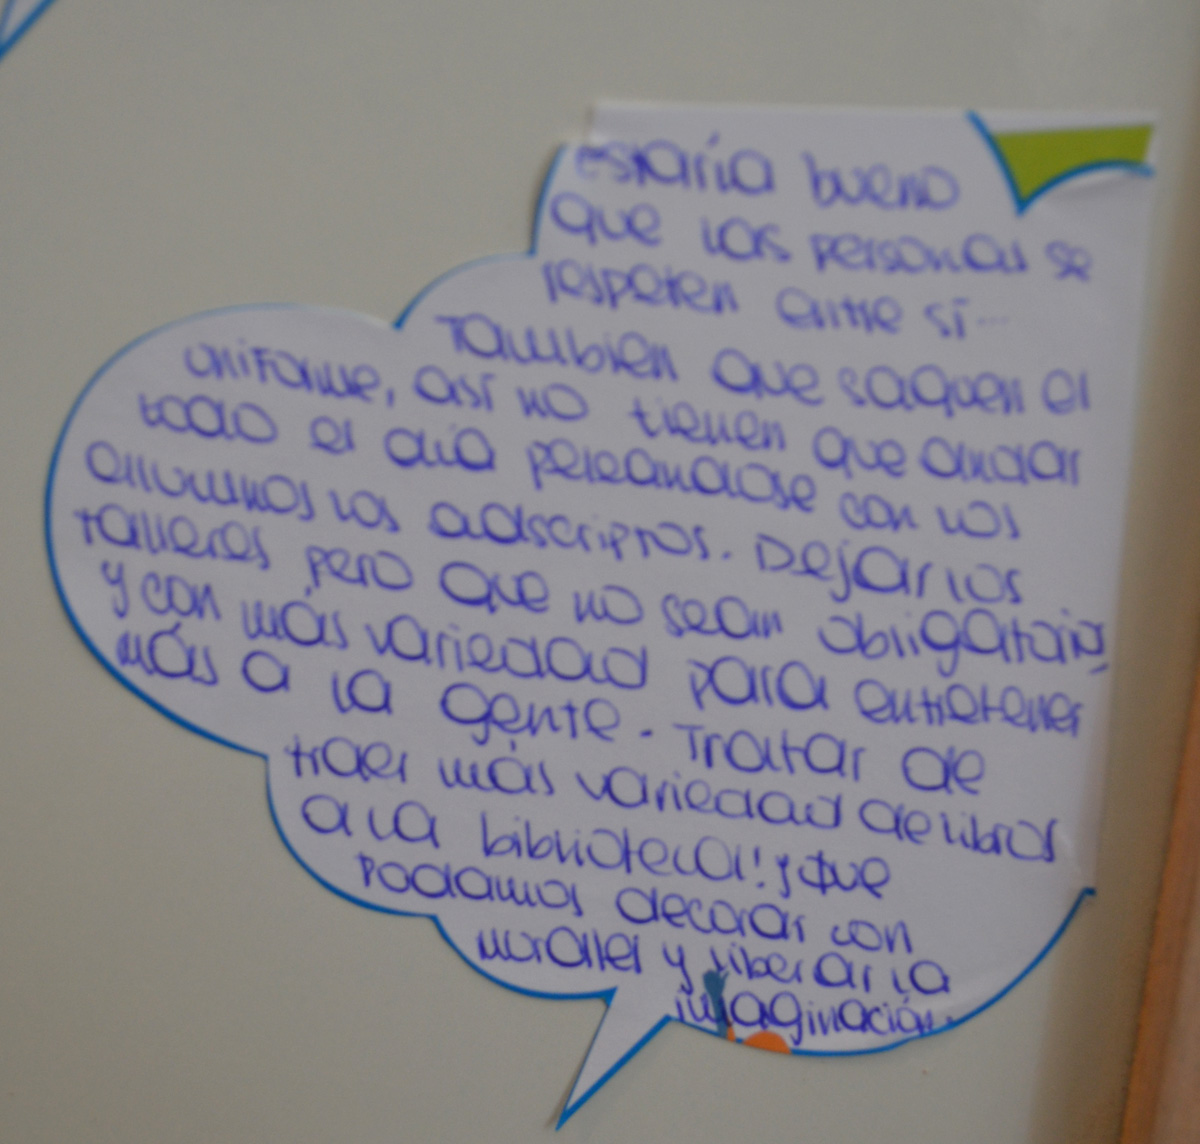 estaría bueno
que las personas se
respeten entre sí...
También que saquen el
uniforme, así no tienen que andar
todo el día peleandose con los
alumnos los adscriptos. Dejar los
talleres pero que no sean obligatorios,
y con más variedad para entretener
más a la gente. Tratar de
traer más variedad de libros
a la biblioteca! y que
podamos decorar con
murales y liberar la
imaginación.